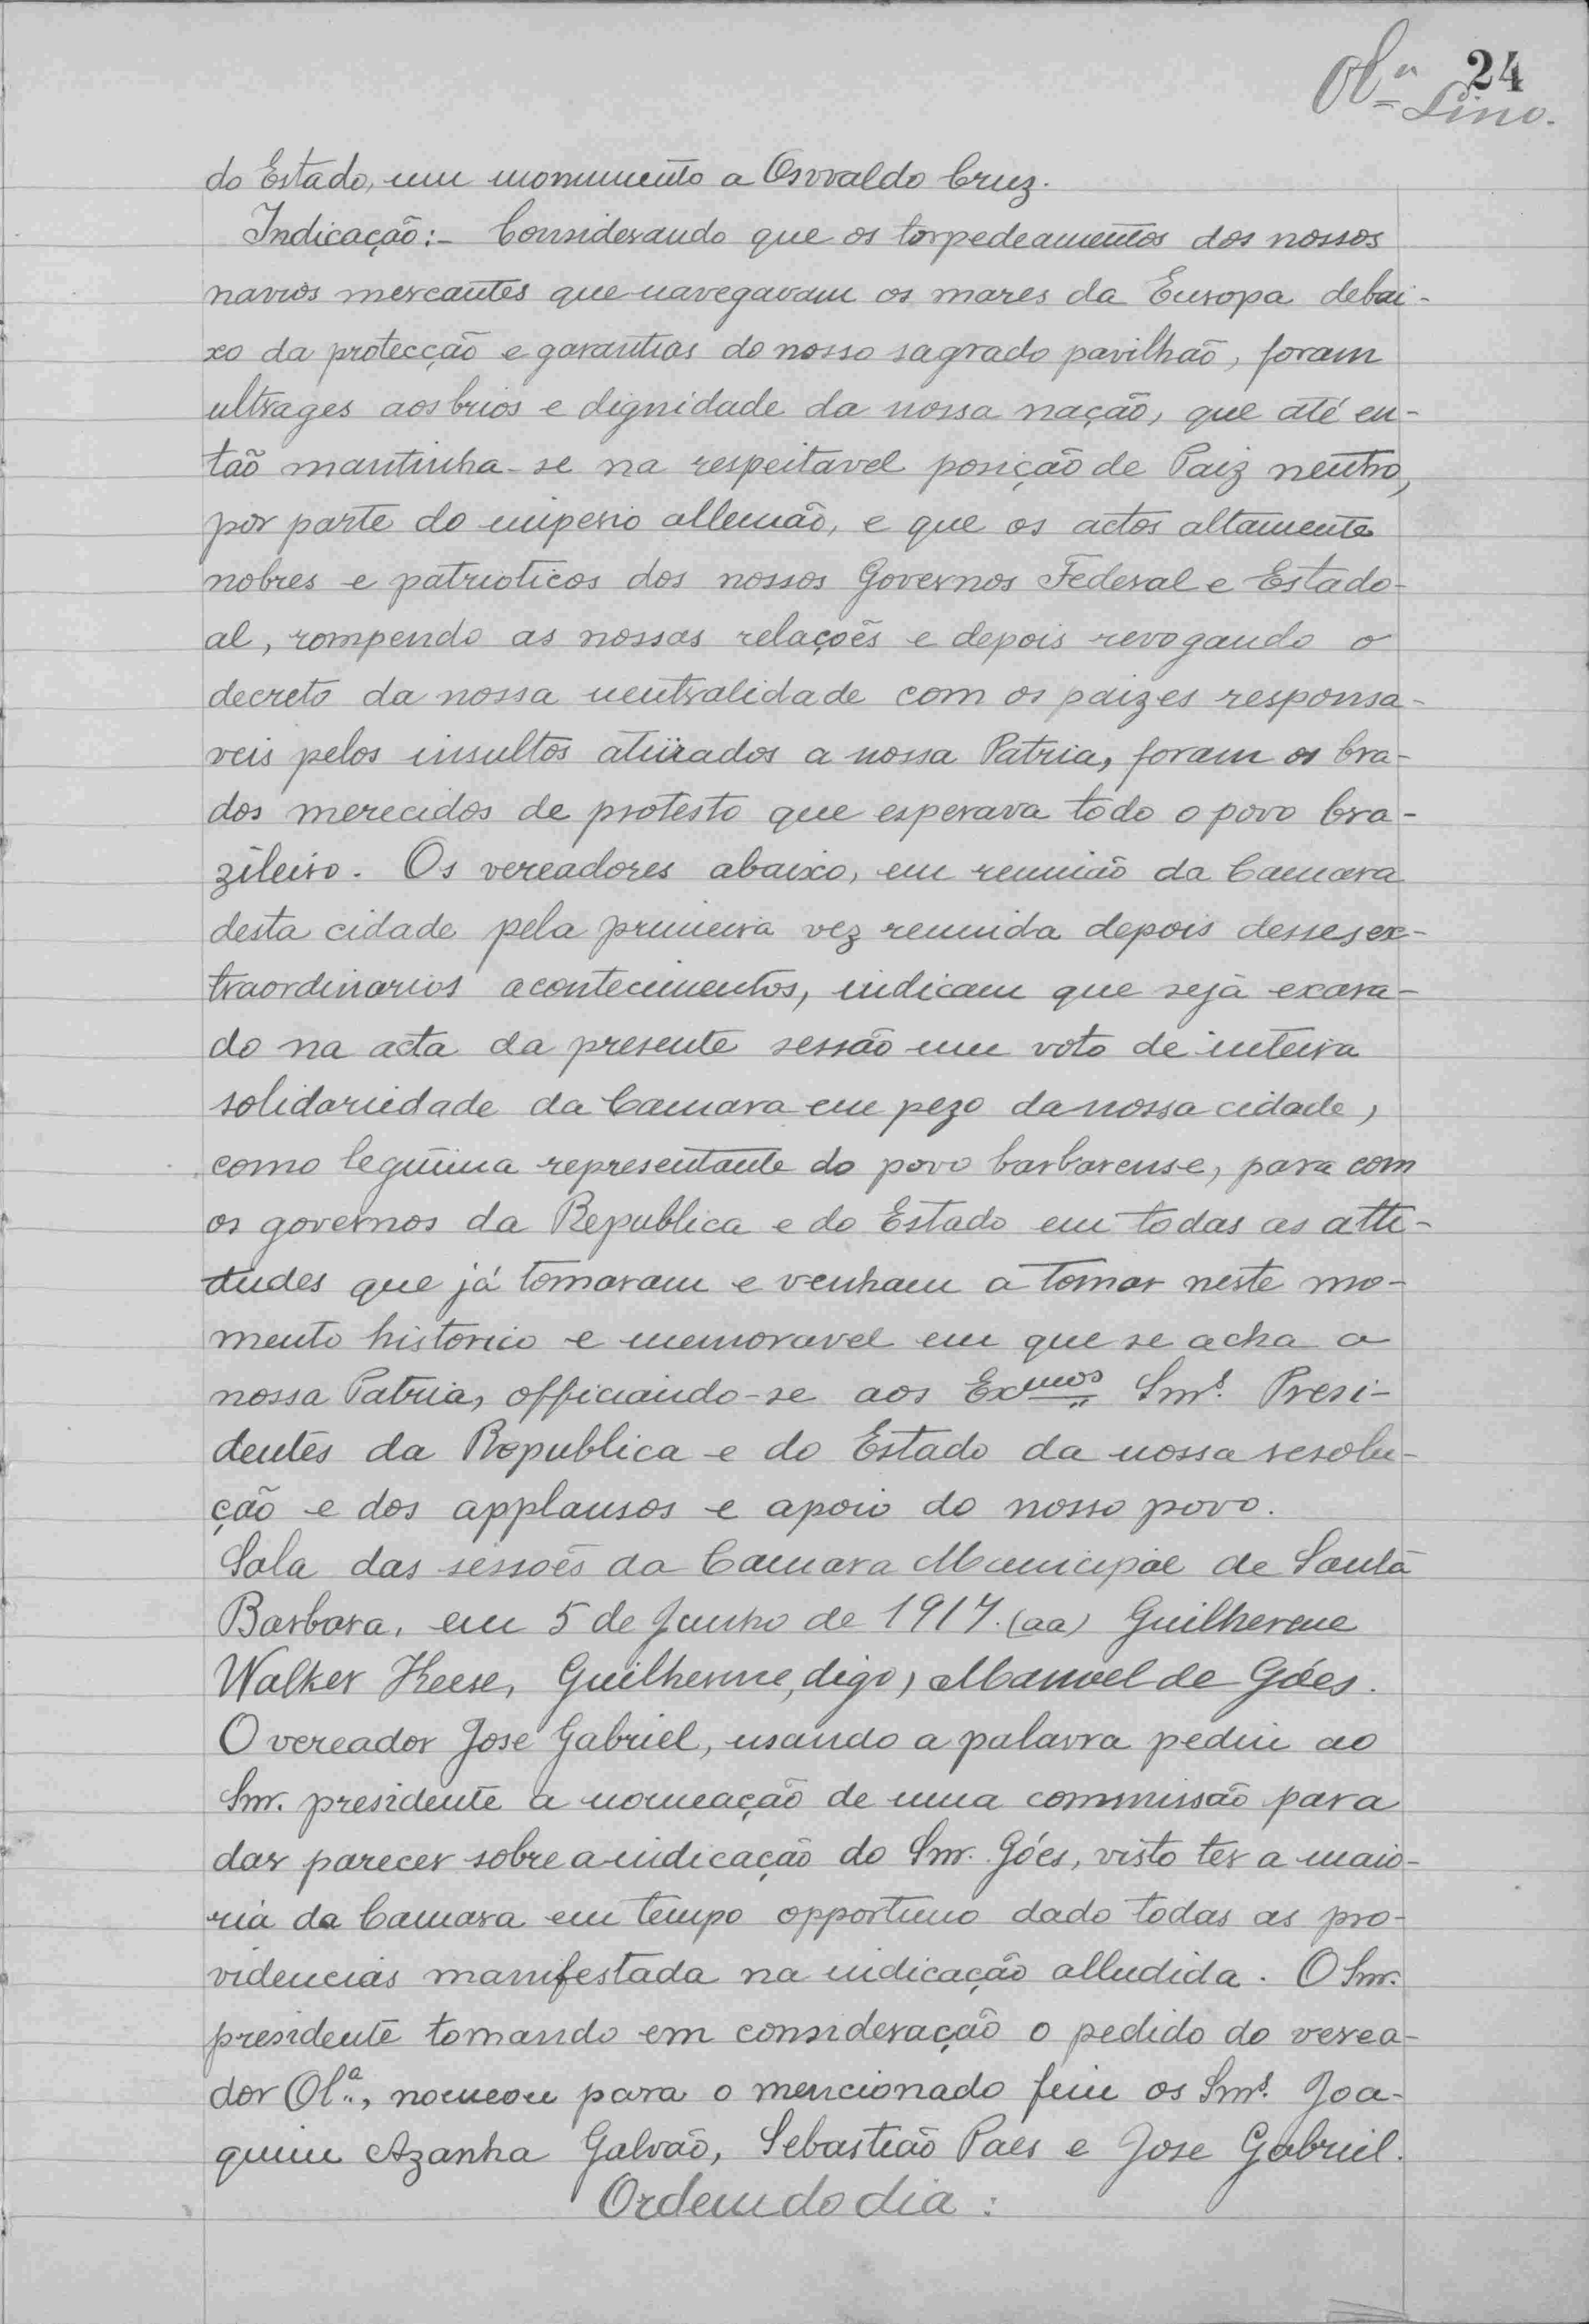 Ol.ª 24
Lino.
do Estado, um monumento a Osvvaldo Cruz.
Indicação:- Considerando que os torpedeamentos dos nossos
navios mercantes que navegavam os mares da Europa debai-
xo da protecção e garantias do nosso sagrado pavilhão, foram
ultrages aos brios e dignidade da nossa nação, que até en-
tão mantinha-se na respeitavel posição de Paiz neutro,
por parte do imperio allemão, e que os actos altamente
nobres e patrioticos dos nossos Governos Federal e Estado-
al, rompendo as nossas relações e depois revogando o
decreto da nossa neutralidade com os paizes responsa-
veis pelos insultos atirados a nossa Patria, foram os bra-
dos merecidos de protesto que esperava todo o povo bra-
zileiro. Os vereadores abaixo, em reunião da Camara
desta cidade pela primeira vez reunida depois desses ex-
traordinarios acontecimentos, indicam que seja exara-
do na acta da presente sessão um voto de inteira
solidariedade da Camara em pezo da nossa cidade,
como legitima representante do povo barbarense, para com
os governos da Republica e do Estado em todas as atti-
tudes que já tomaram e venham a tomar neste mo-
mento historico e memoravel em que se acha a
nossa Patria, officiando-se aos Exmos Snrs. Presi-
dentes da Republica e do Estado da nossa resolu-
ção e dos applausos e apoio do nosso povo.
Sala das sessões da Camara Municipal de Santa
Barbara, em 5 de Junho de 1917. (aa) Guilherme
Walker Keese, Guilherme, digo, Manoel de Góes.
O vereador José Gabriel, usando a palavra pediu ao
Snr. presidente a nomeação de uma commissão para
dar parecer sobre a indicação do Snr. Góes, visto ter a maio-
ria da Camara em tempo opportuno dado todas as pro-
videncias manifestada na indicação alludida. O Snr.
presidente tomando em consideração o pedido do verea-
dor Ol.ª, nomeou para o mencionado fim os Snrs. Joa-
quim Azanha Galvão, Sebastião Paes e Jose Gabriel.
Ordem do dia: